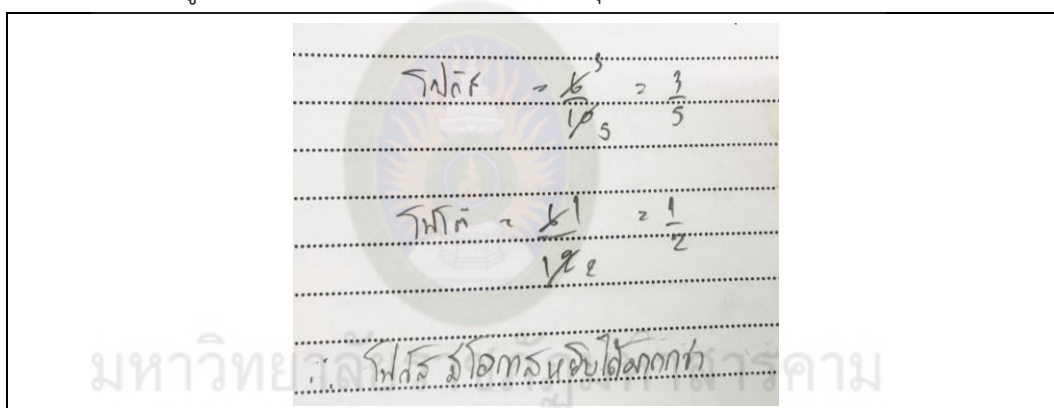 โฟกัส = 6/10 3 5 = 3/5
โฟโต้ = 6/12 1 2 = 1/2
∴ โฟกัส มีโอกาสหยิบได้มากกว่า
มหาวิทยาลัยราชภัฏมหาสารคาม